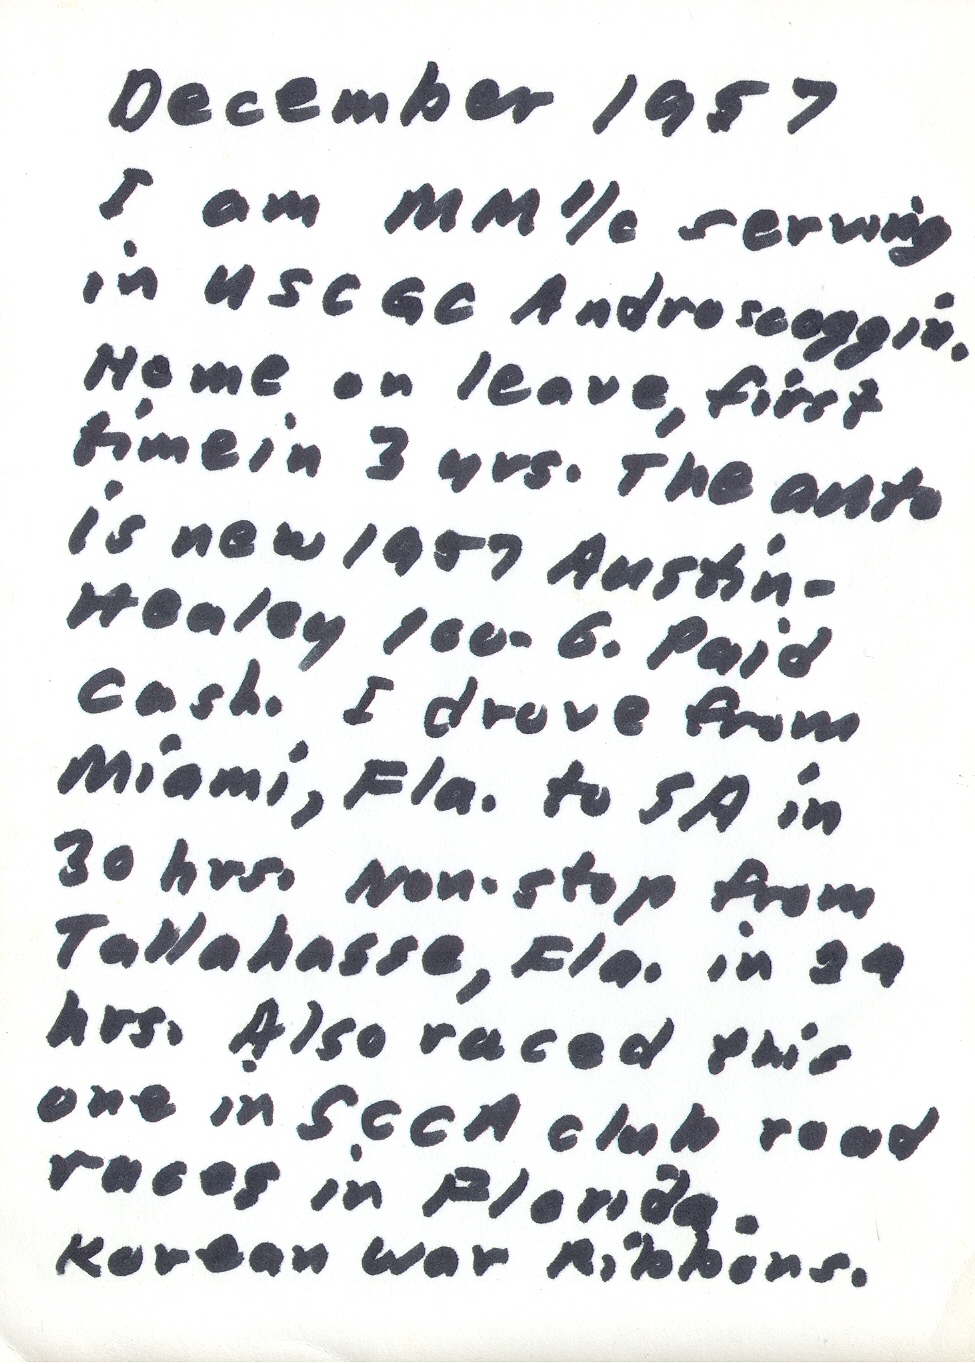 December 1957
I am MM 1/c serving
in USCGC Androscoggin.
Home on leave, first
time in 3 yrs. The auto
is new 1957 Austin-
Healey 100-6. Paid
Cash. I drove from
Miami, Fla. to SA in
30 hrs. Non-stop from
Tallahasse, Fla. in 29
hrs. Also raced this
one in SCCA club road
races in Florida.
Korean War Ribbons.